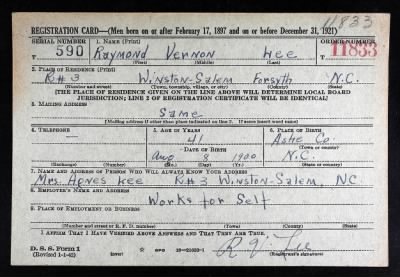 11833
REGISTRATION CARD—(Men born on or after February 17, 1897 and on or before December 31, 1921)
SERIAL NUMBER 1. NAME (Print) ORDER NUMBER
T 590 Raymond Vernon Lee T 11833
(First) (Middle) (Last)
2. PLACE OF RESIDENCE (Print)
R#3 Winston-Salem Forsyth N.C.
(Number and street) (Town, township, village, or city) (County) (State)
[THE PLACE OF RESIDENCE GIVEN ON THE LINE ABOVE WILL DETERMINE LOCAL BOARD
JURISDICTION; LINE 2 OF REGISTRATION CERTIFICATE WILL BE IDENTICAL]
3. MAILING ADDRESS
Same
[Mailing address if other than place indicated on line 2. If same insert word same]
4. TELEPHONE 5. AGE IN YEARS 6. PLACE OF BIRTH
41 Ashe Co.
DATE OF BIRTH (Town or county)
Aug 8 1900 N.C.
(Exchange) (Number) (Mo.) (Day) (Yr.) (State or country)
7. NAME AND ADDRESS OF PERSON WHO WILL ALWAYS KNOW YOUR ADDRESS
Mrs. Agnes Lee R#3 Winston-Salem, N.C.
8. EMPLOYER'S NAME AND ADDRESS
Works for Self
9. PLACE OF EMPLOYMENT OR BUSINESS
(Number and street or R. F. D. number) (Town) (County) (State)
I AFFIRM THAT I HAVE VERIFIED ABOVE ANSWERS AND THAT THEY ARE TRUE.
D. S. S. Form 1
(Revised 1-1-42) GPO 16—21630-1 R. V. Lee